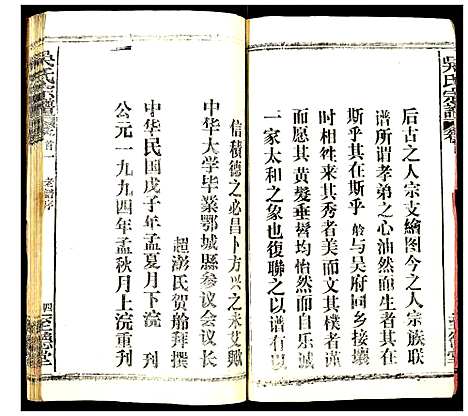 吳氏宗譜
後古之人宗支繪图今之人宗族联
谱所谓孝弟之心油然而生者其在
斯乎其在斯乎 始与吴府回乡接壤
时相往来其秀者美而文其樸者谨
而愿尤其黄髮垂髫均怡然自乐诚
一家太和之象也復聯之以谱有以
信積德之必昌卜方興之未艾歟
中华大学毕業鄂城縣参议会议长
超澎氏贺舲拜撰
中华民国戊子年孟夏月下浣 刋
公元一九九四年孟秋月上浣重刋
吳氏宗譜
卷首一
老譜序
四
至德堂